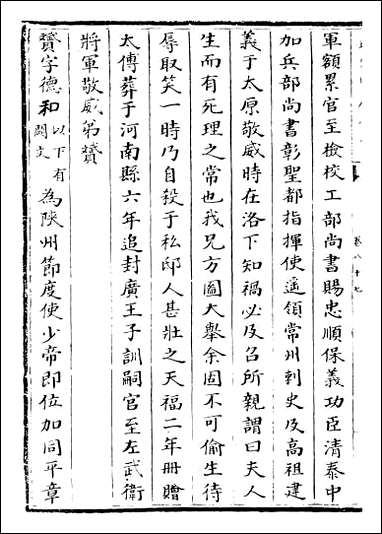 軍額累官至檢校工部尚書賜忠順保義功臣清泰中
加兵部尚書彰聖都指揮使遥領常州刺史及高祖建
義于太原敬威時在洛下知禍必及召所親謂曰夫人
生而有死理之常也我兄方圖大舉余固不可偷生待
辱取笑一時乃自殺于私邸人甚壯之天福二年冊贈
太傅葬于河南縣六年追封廣王子訓嗣官至左武衛
將軍敬威弟贇
贇字德和以下有闕文為陜州節度使少帝即位加同平章
卷八十七